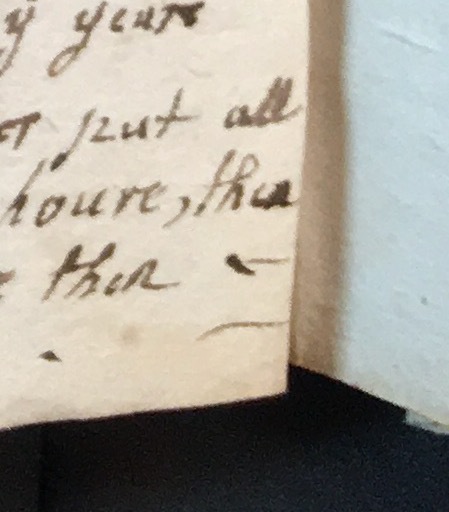 y years
put all
houre, then
then